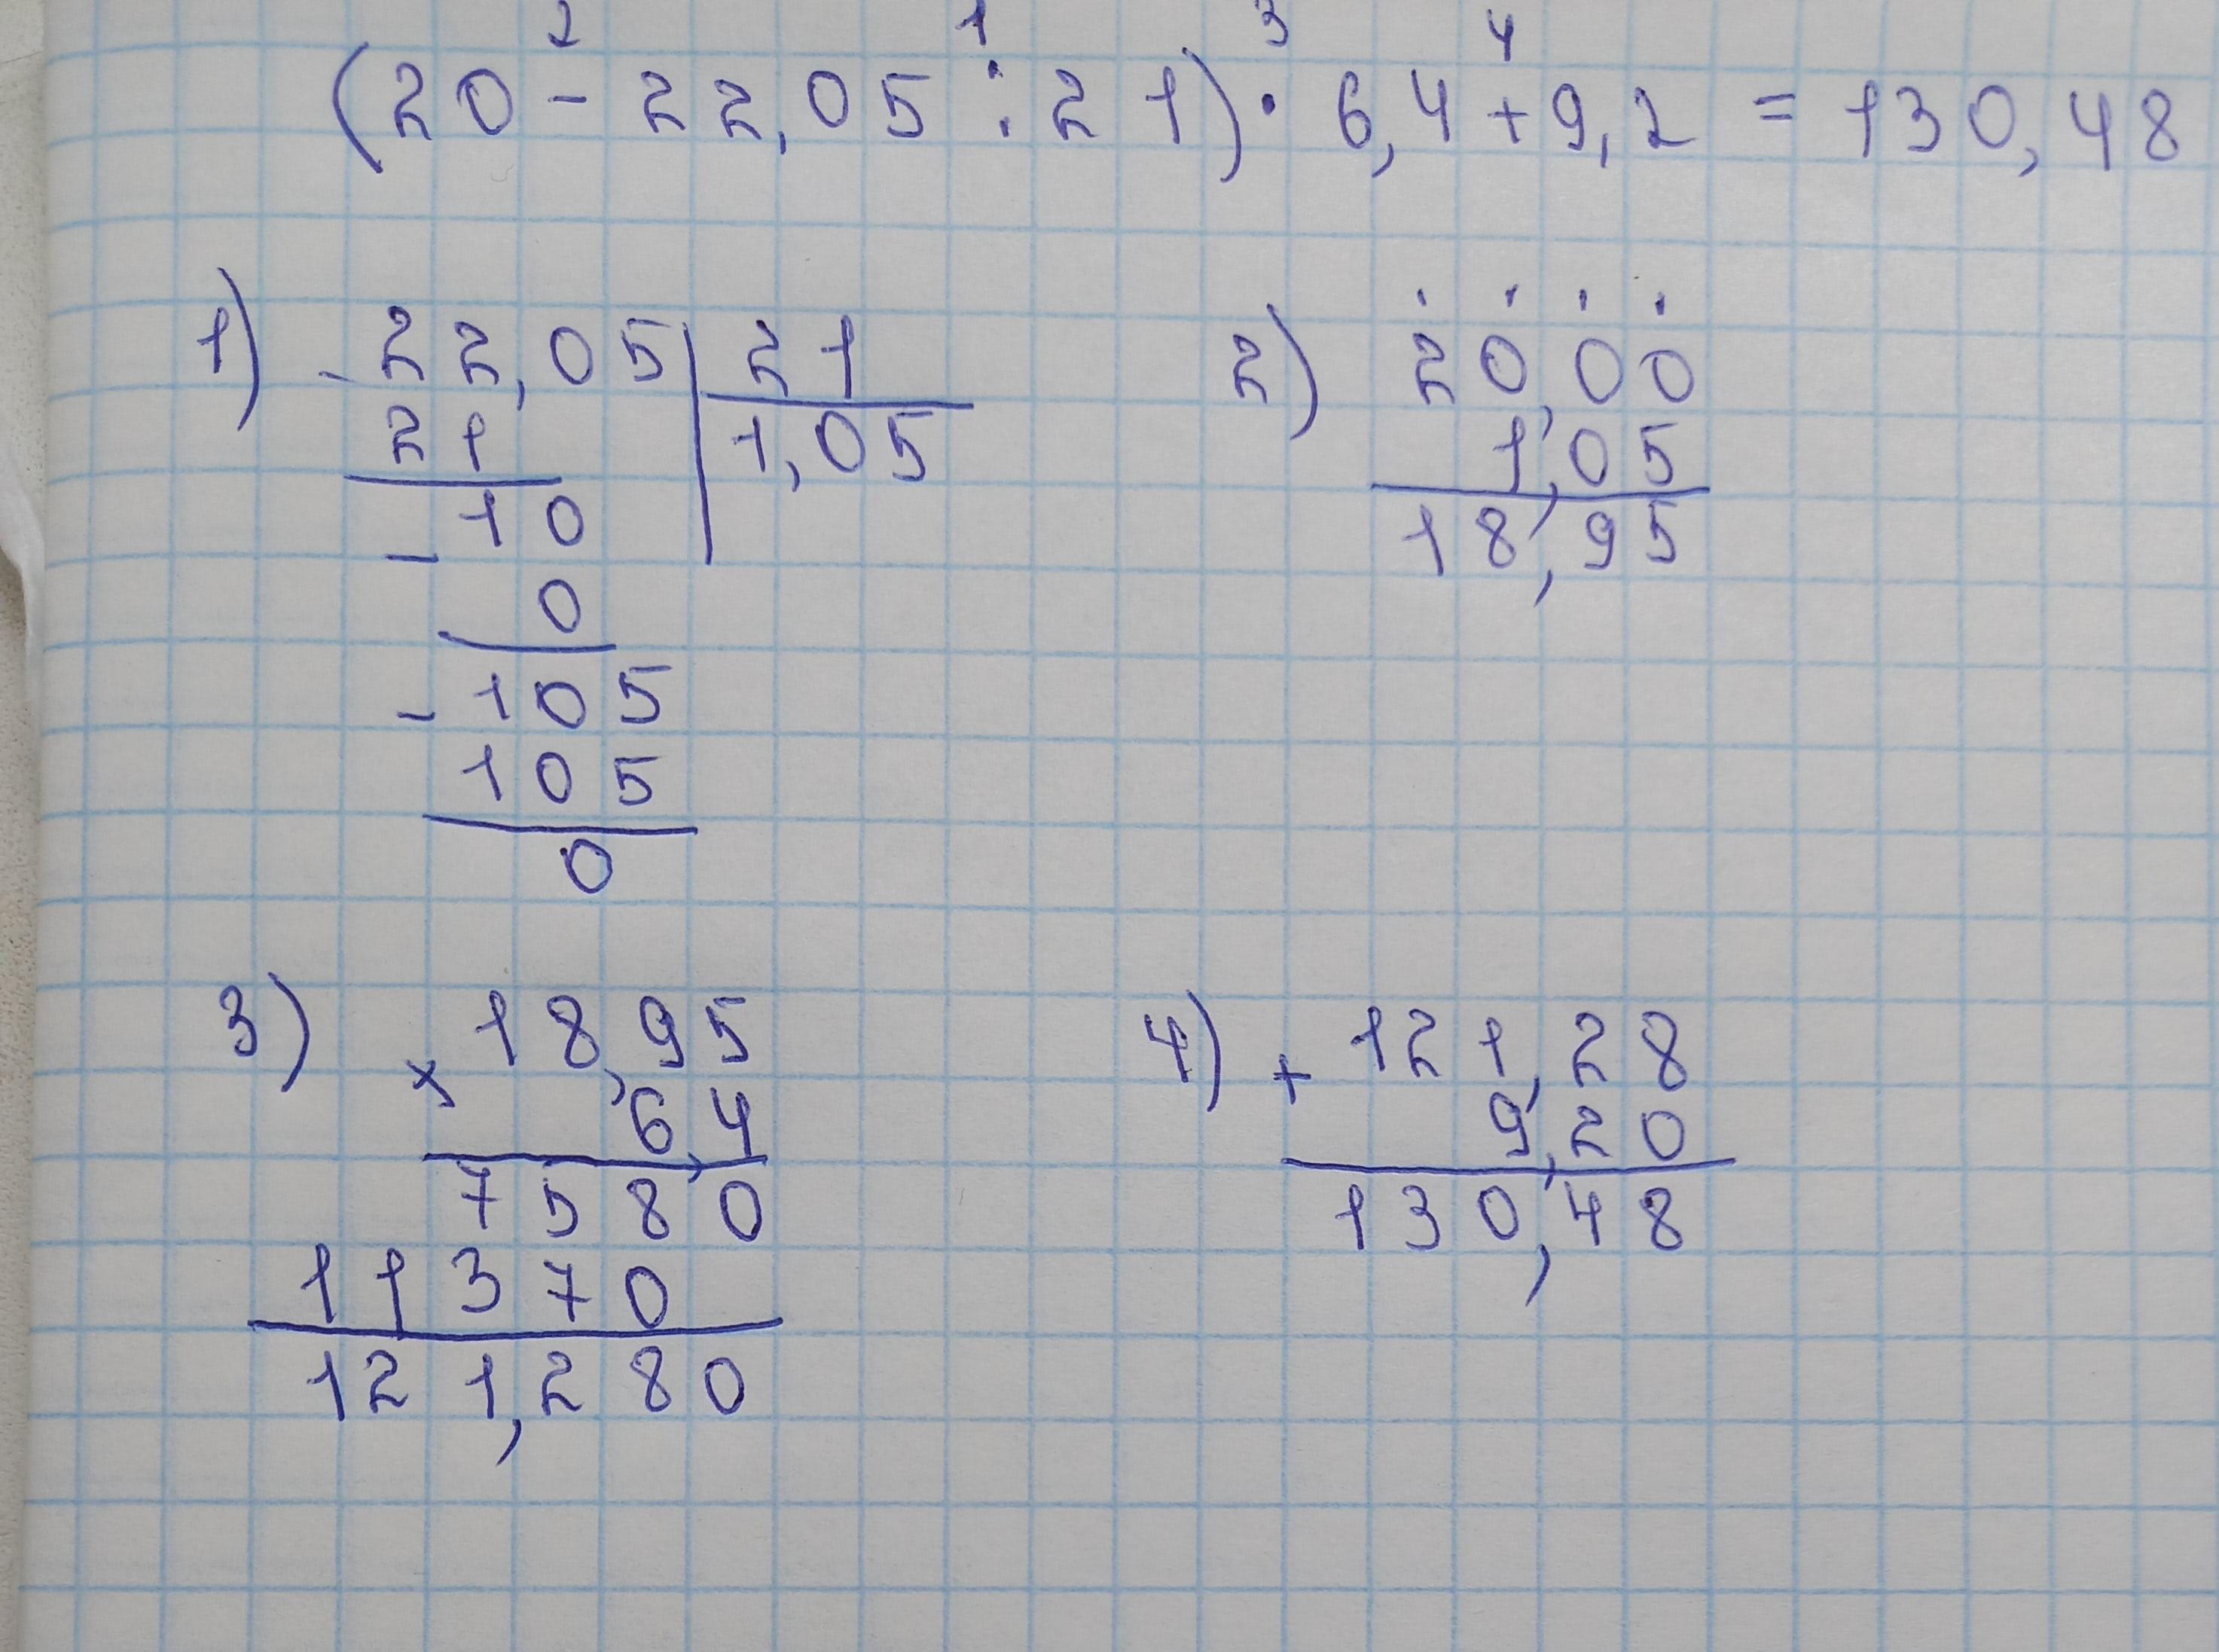 2 1 3 4
(20 - 22,05 : 21) · 6,4 + 9,2 = 130,48
1)
- 22,05 | 21
21 | 1,05
- 10
0
- 105
105
0
2)
20,00
1,05
18,95
3)
× 18,95
6,4
7580
11370
121,280
4)
+ 121,28
9,20
130,48